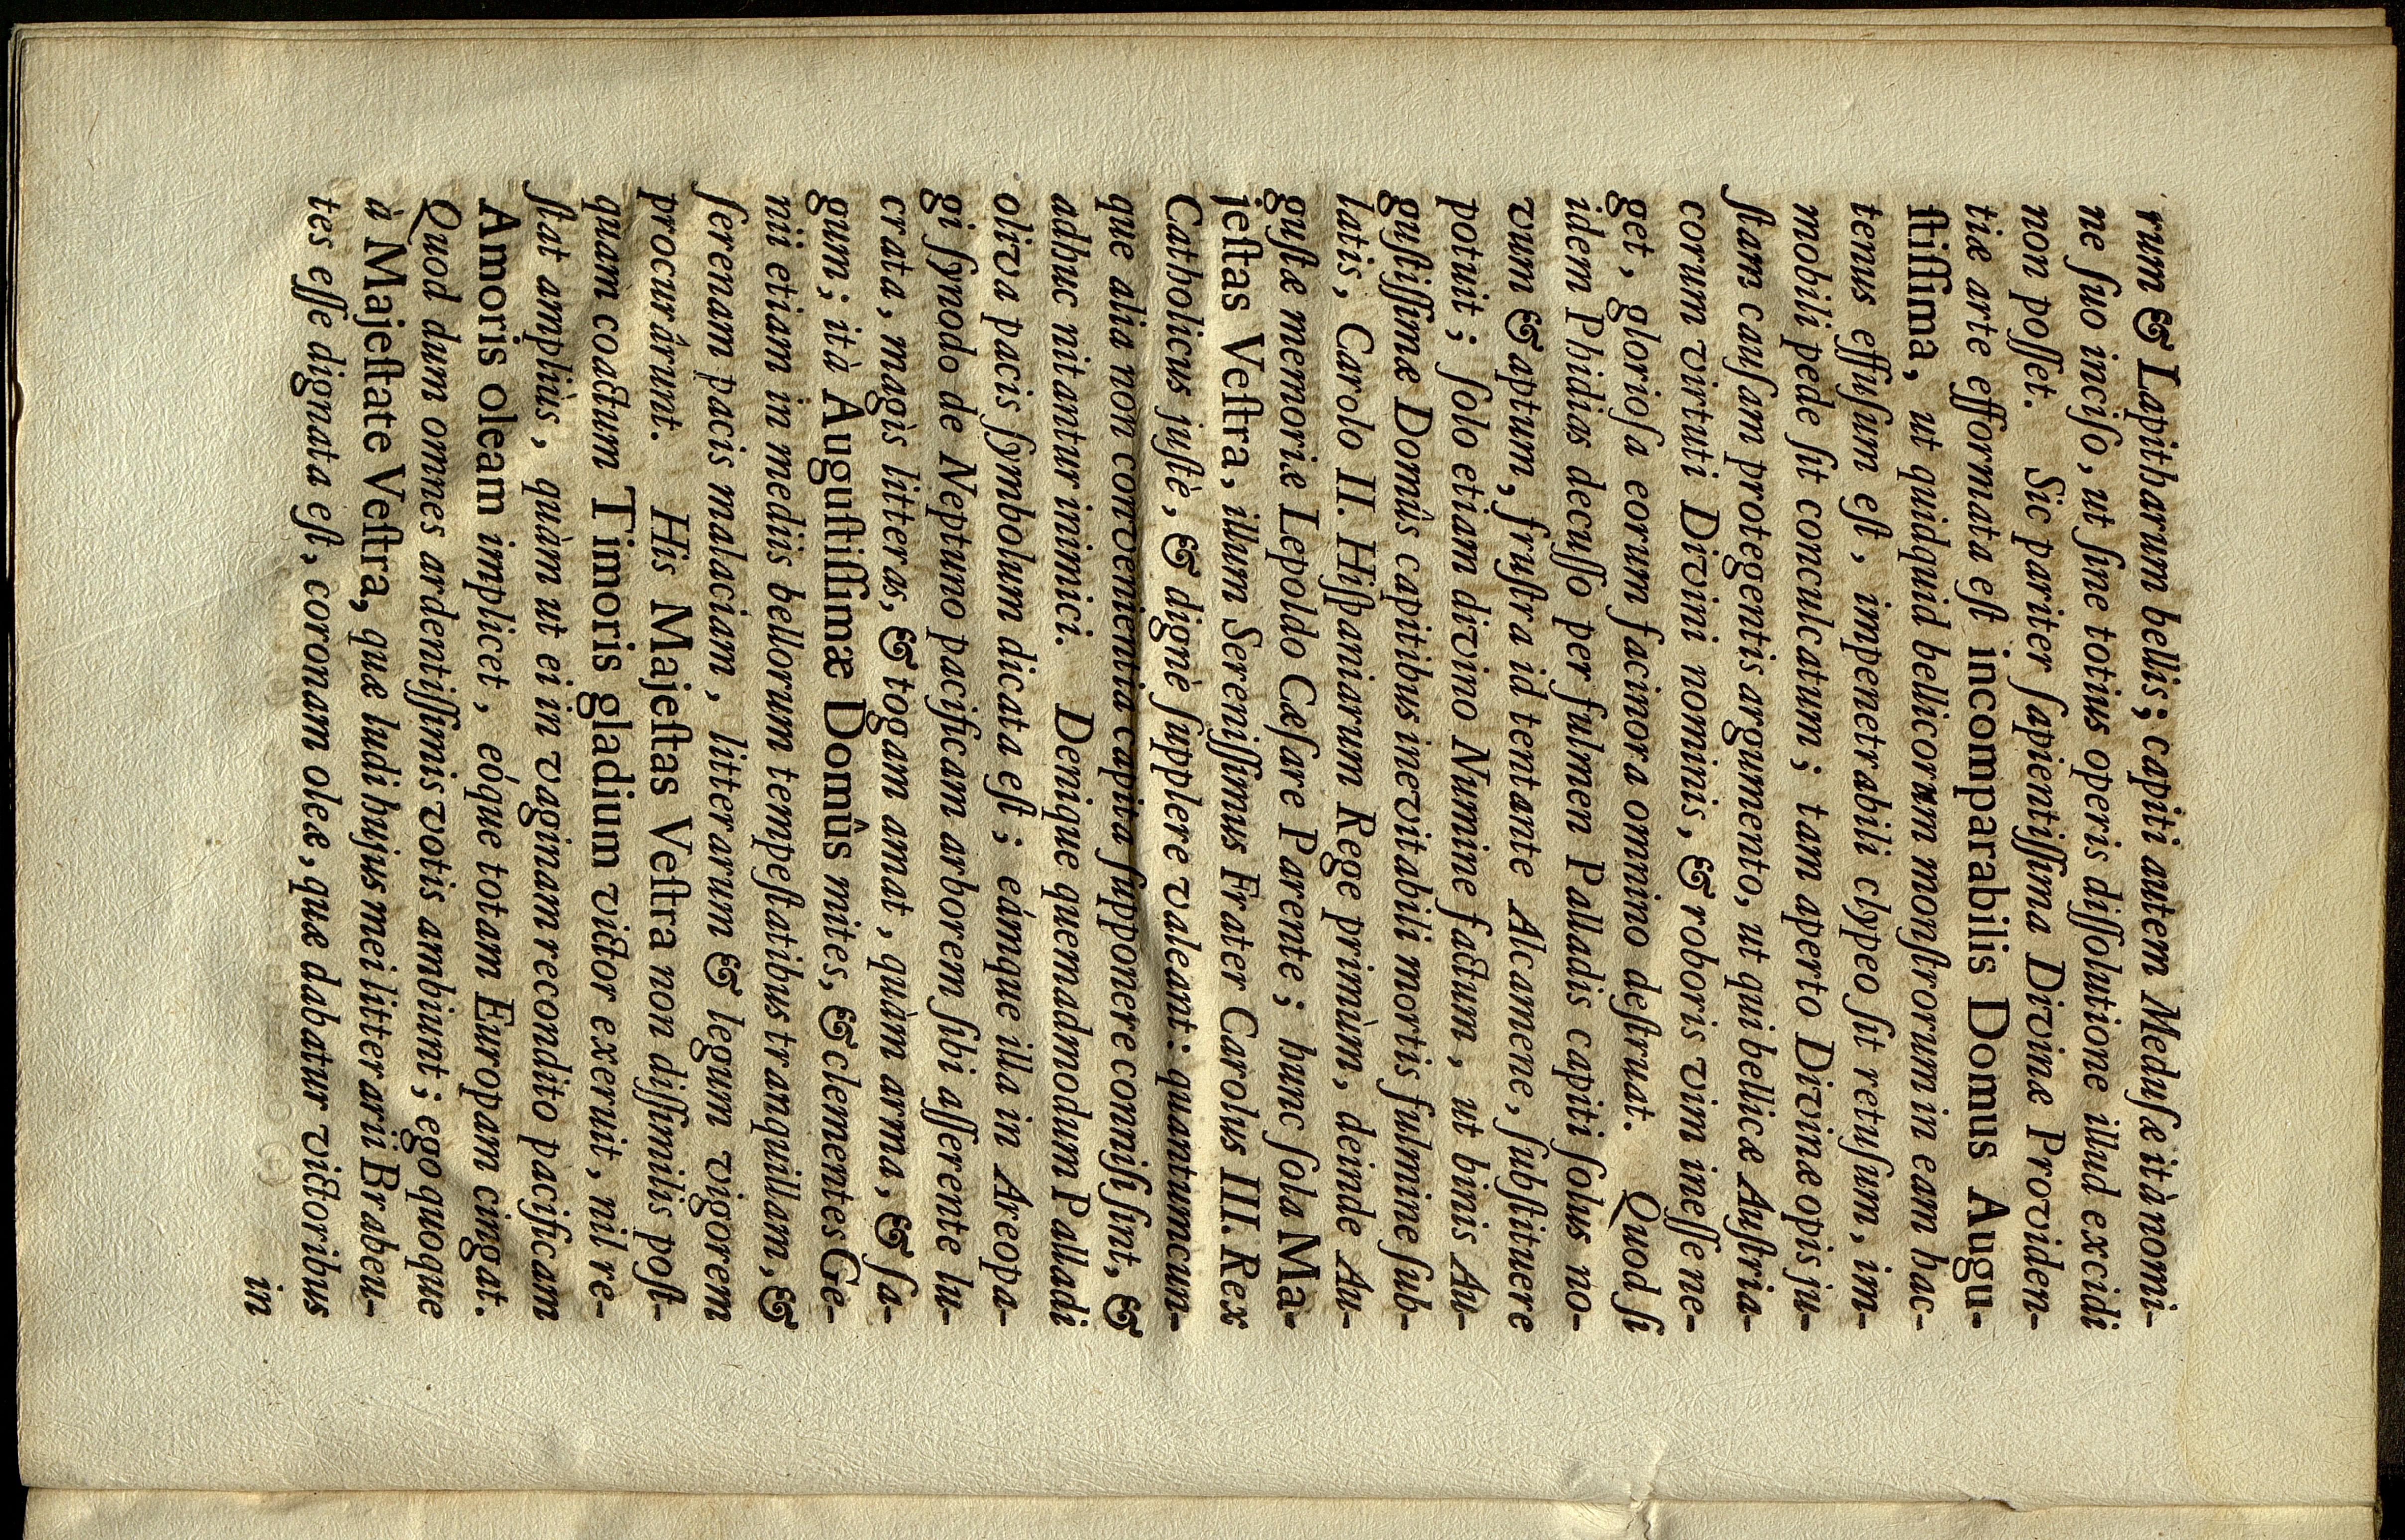 rum & Lapitharum bellis; capiti autem Medusæ ità nomi-
ne ſuo inciſo, ut ſine totius operis diſſolutione illud excidi
non poſſet. Sic pariter ſapientiſſima Divinæ Providen-
tiæ arte efformata eſt incomparabilis Domus Augu-
ſtiſſima, ut quidquid bellicorum monſtrorum in eam hac-
tenus effuſum eſt, impenetrabili clypeo ſit retuſum, im-
mobili pede ſit conculcatum; tam aperto Divinæ opis ju-
ſtam cauſam protegentis argumento, ut qui bellicæ Auſtria-
corum virtuti Divini nominis, & roboris vim ineſſe ne-
get, glorioſa eorum facinora omnino deſtruat. Quod ſi
idem Phidias decuſſo per fulmen Palladis capiti ſolus no-
vum & aptum, fruſtra id tentante Alcamene, ſubſtituere
potuit; ſolo etiam divino Numine factum, ut binis Au-
guſtiſſimæ Domûs capitibus inevitabili mortis fulmine ſub-
latis, Carolo II. Hiſpaniarum Rege primùm, deinde Au-
guſtæ memoriæ Lepoldo Cæſare Parente; hunc ſola Ma-
jeſtas Veſtra, illum Sereniſſimus Frater Carolus III. Rex
Catholicus juſtè, & dignè ſupplere valeant: quantumcun-
que alia non convenientia capita ſupponere conniſi ſint, &
adhuc nitantur inimici. Denique quemadmodum Palladi
oliva pacis ſymbolum dicata eſt; eámque illa in Areopa-
gi ſynodo de Neptuno pacificam arborem ſibi aſſerente lu-
crata, magìs litteras, & togam amat, quàm arma, & ſa-
gum; ità Auguſtiſſimæ Domûs mites, & clementes Ge-
nii etiam in mediis bellorum tempeſtatibus tranquillam, &
ſerenam pacis malaciam, litterarum & legum vigorem
procurârunt. His Majeſtas Veſtra non diſſimilis poſt-
quam coactum Timoris gladium victor exeruit, nil re-
ſtat ampliùs, quàm ut ei in vaginam recondito pacificam
Amoris oleam implicet, eóque totam Europam cingat.
Quod dum omnes ardentiſſimis votis ambiunt; ego quoque
à Majeſtate Veſtra, quæ ludi hujus mei litterarii Brabeu-
tes eſſe dignata eſt, coronam oleæ, quæ dabatur victoribus
in